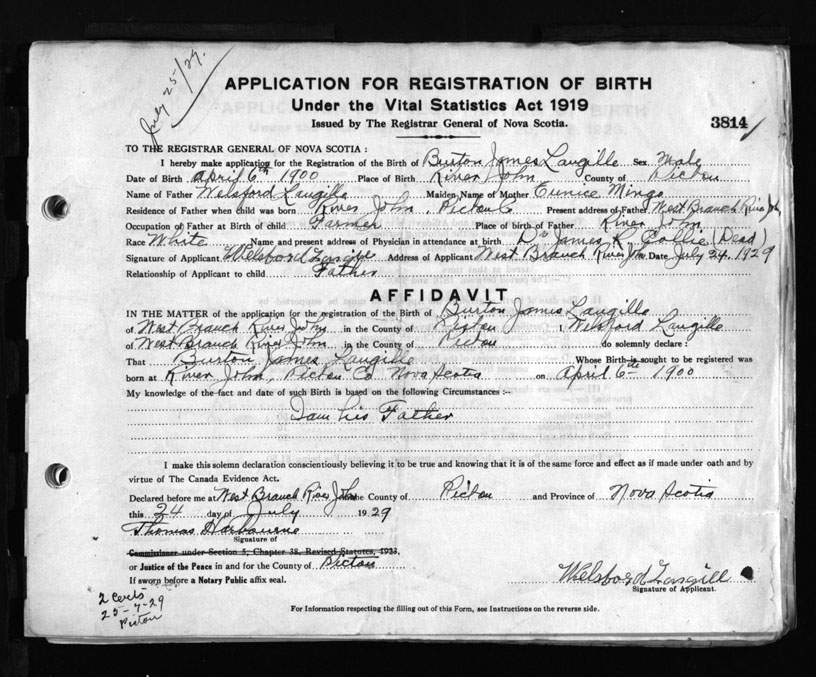 July 25/29.
APPLICATION FOR REGISTRATION OF BIRTH
Under the Vital Statistics Act 1919
Issued by The Registrar General of Nova Scotia.
3814
TO THE REGISTRAR GENERAL OF NOVA SCOTIA :
I hereby make application for the Registration of the Birth of Burton James Langille Sex Male
Date of Birth April 6th 1900 Place of Birth River John County of Pictou
Name of Father Welsford Langille Maiden Name of Mother Eunice Mingo
Residence of Father when child was born River John, Pictou Co Present address of Father West Branch River John
Occupation of Father at Birth of child Farmer Place of birth of Father River John
Race White Name and present address of Physician in attendance at birth Dr James K. Collie (Dead)
Signature of Applicant Welsford Langill Address of Applicant West Branch River Jno. Date July 24. 1929
Relationship of Applicant to child Father
AFFIDAVIT
IN THE MATTER of the application for the registration of the Birth of Burton James Langille
of West Branch River John in the County of Pictou I Welsford Langille
of West Branch River John in the County of Pictou do solemnly declare :
That Burton James Langille Whose Birth is sought to be registered was
born at River John, Pictou Co Nova Scotia on April 6th 1900
My knowledge of the fact and date of such Birth is based on the following Circumstances :-
I am his Father
I make this solemn declaration conscientiously believing it to be true and knowing that it is of the same force and effect as if made under oath and by
virtue of The Canada Evidence Act.
Declared before me at West Branch River John in the County of Pictou and Province of Nova Scotia
this 24 day of July 1929
Thomas Harbourne
Signature of
Commissioner under Section 5, Chapter 38, Revised Statutes, 1923,
or Justice of the Peace in and for the County of Pictou
If sworn before a Notary Public affix seal.
Welsford Langill
Signature of Applicant.
2 Certs
25-7-29
Pictou
For Information respecting the filling out of this Form, see Instructions on the reverse side.